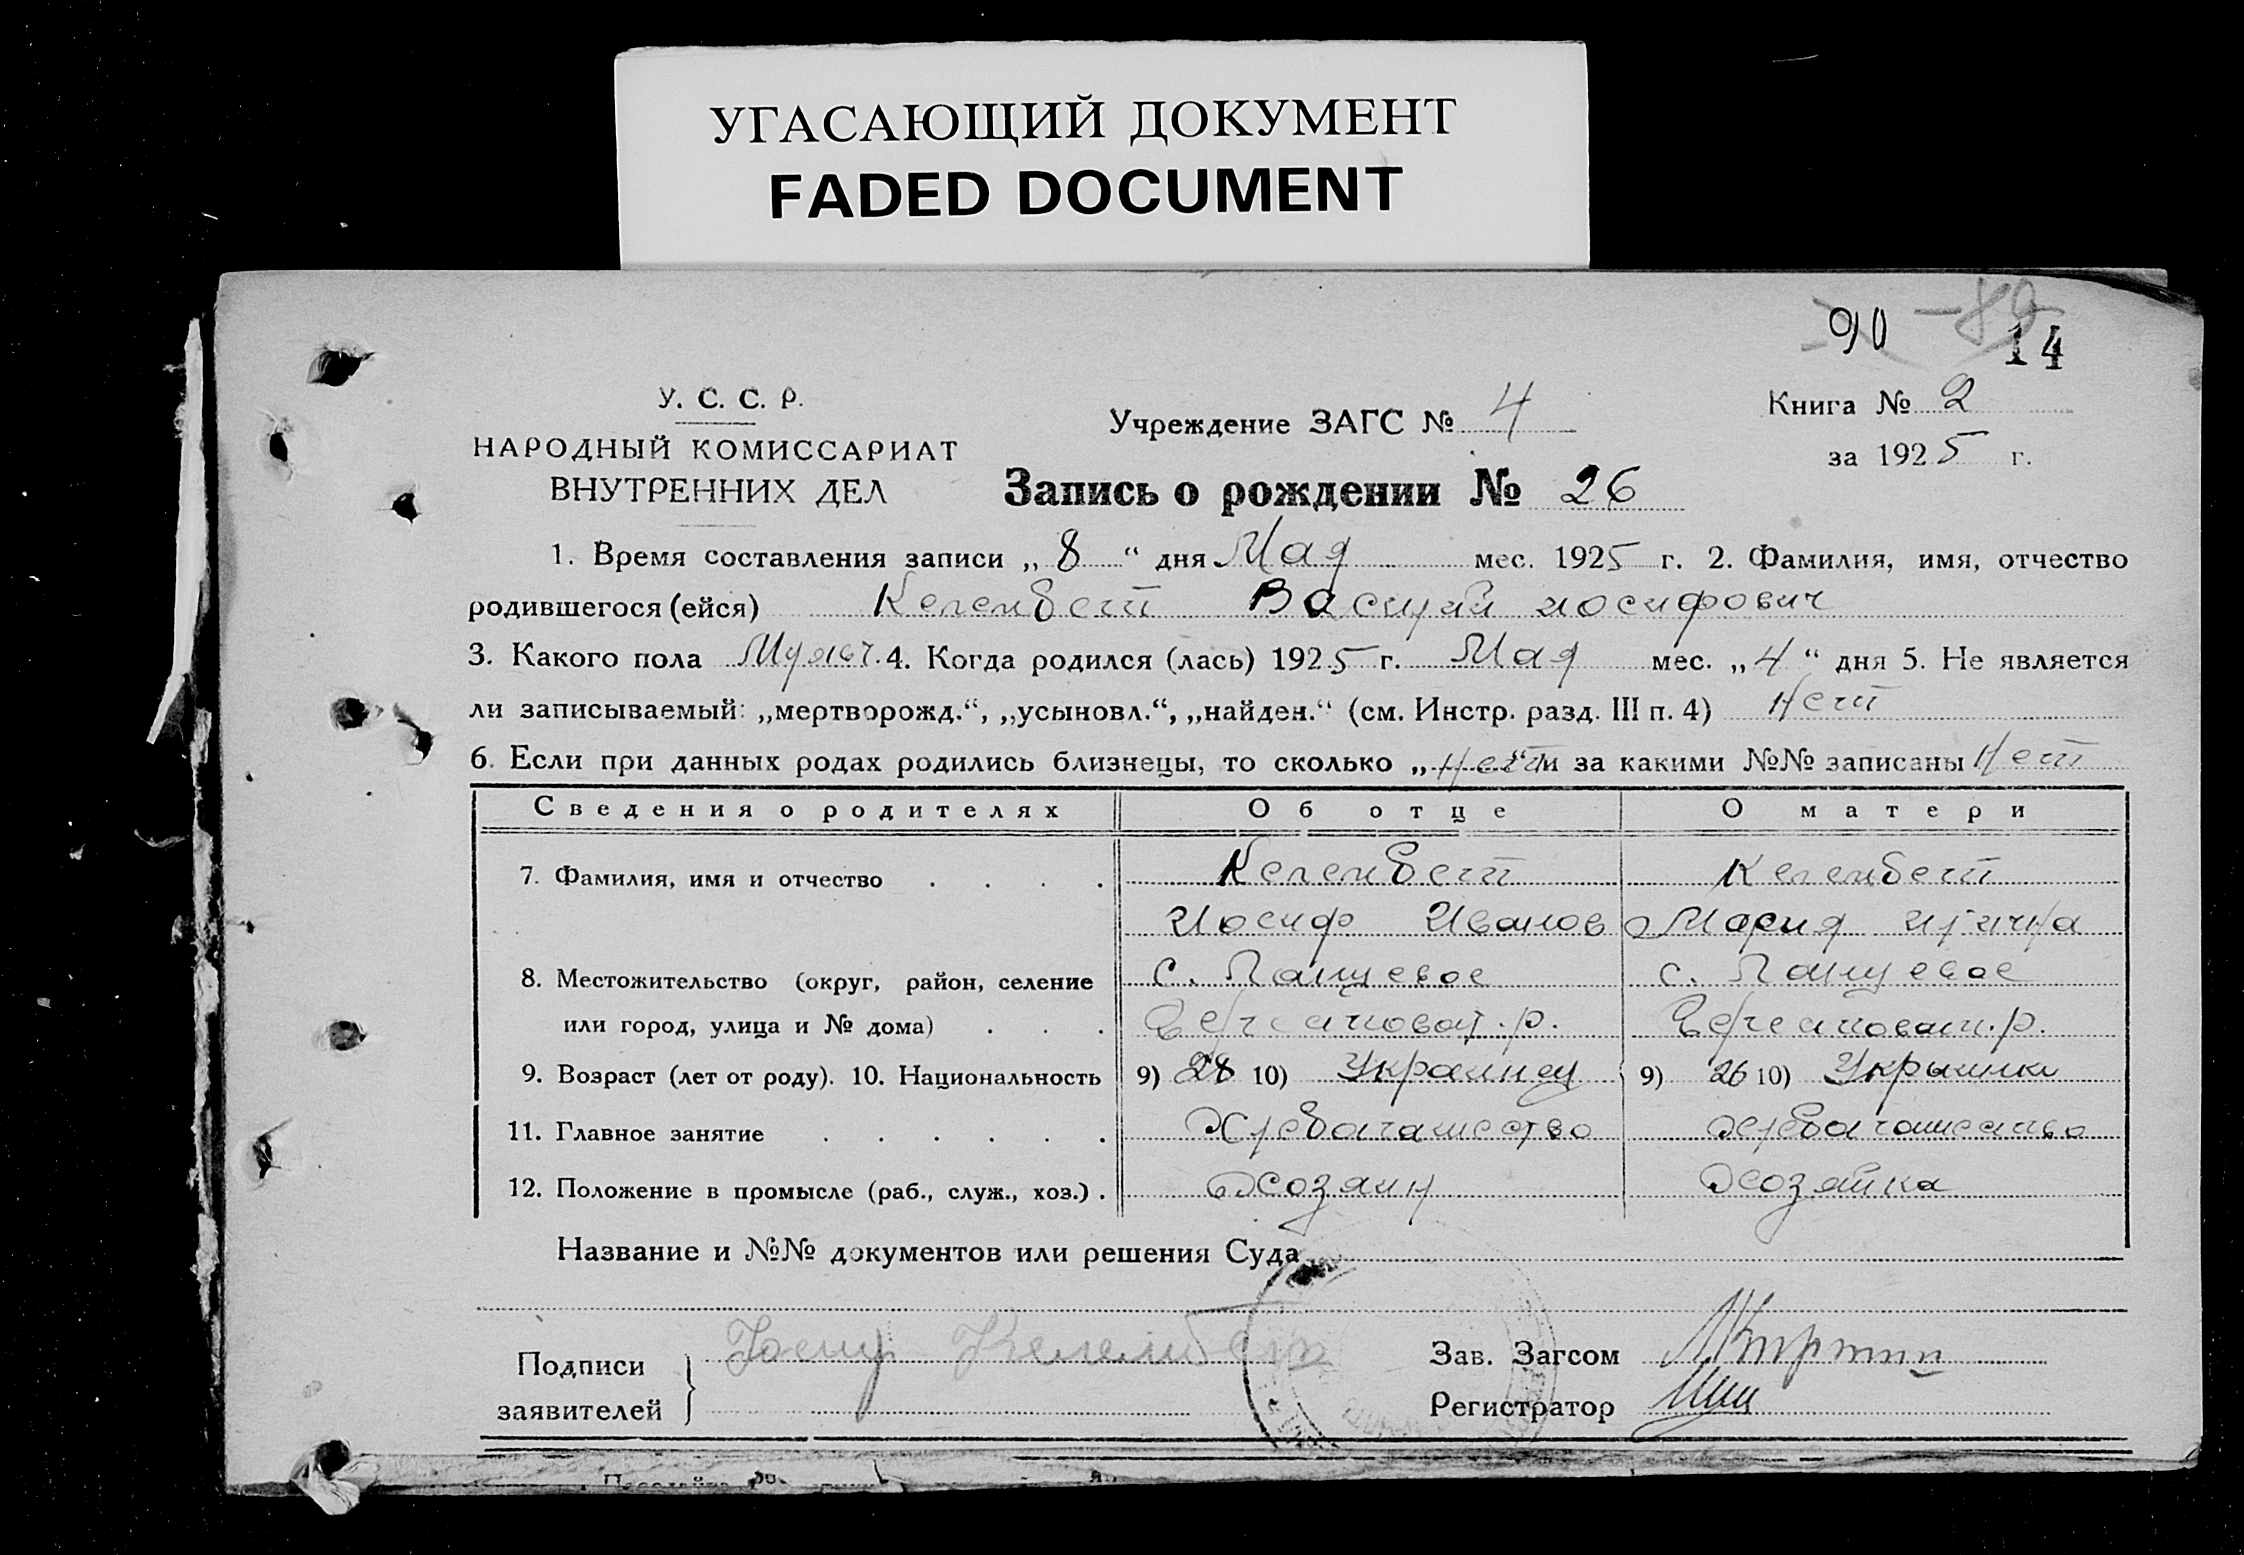 УГАСАЮЩИЙ ДОКУМЕНТ
FADED DOCUMENT
90 - 89
14
У. С. С. Р.
НАРОДНЫЙ КОМИССАРИАТ
ВНУТРЕННИХ ДЕЛ
Учреждение ЗАГС № 4
Книга № 2
за 1925 г.
Запись о рождении № 26
1. Время составления записи „ 8 “ дня Мая мес. 1925 г. 2. Фамилия, имя, отчество
родившегося (ейся) Келембет Василий иосифович
3. Какого пола Мужск. 4. Когда родился (лась) 1925 г. Мая мес. „ 4 “ дня 5. Не является
ли записываемый: „мертворожд.“, „усыновл.“, „найден.“ (см. Инстр. разд. III п. 4) Нет
6. Если при данных родах родились близнецы, то сколько „ Нет “ и за какими №№ записаны Нет
Сведения о родителях Об отце О матери
7. Фамилия, имя и отчество . . . . Келембет Келембет
Иосиф Иванов Мария
8. Местожительство (округ, район, селение с. с.
или город, улица и № дома) . . . р. р.
9. Возраст (лет от роду). 10. Национальность 9) 28 10) Украинец 9) 26 10) Укрыинка
11. Главное занятие . . . . . . Хлебопашество хлебопашество
12. Положение в промысле (раб., служ., хоз.) . Хозяин Хозяйка
Название и №№ документов или решения Суда
Подписи
заявителей
Иосиф Келембет
Зав. Загсом
Регистратор